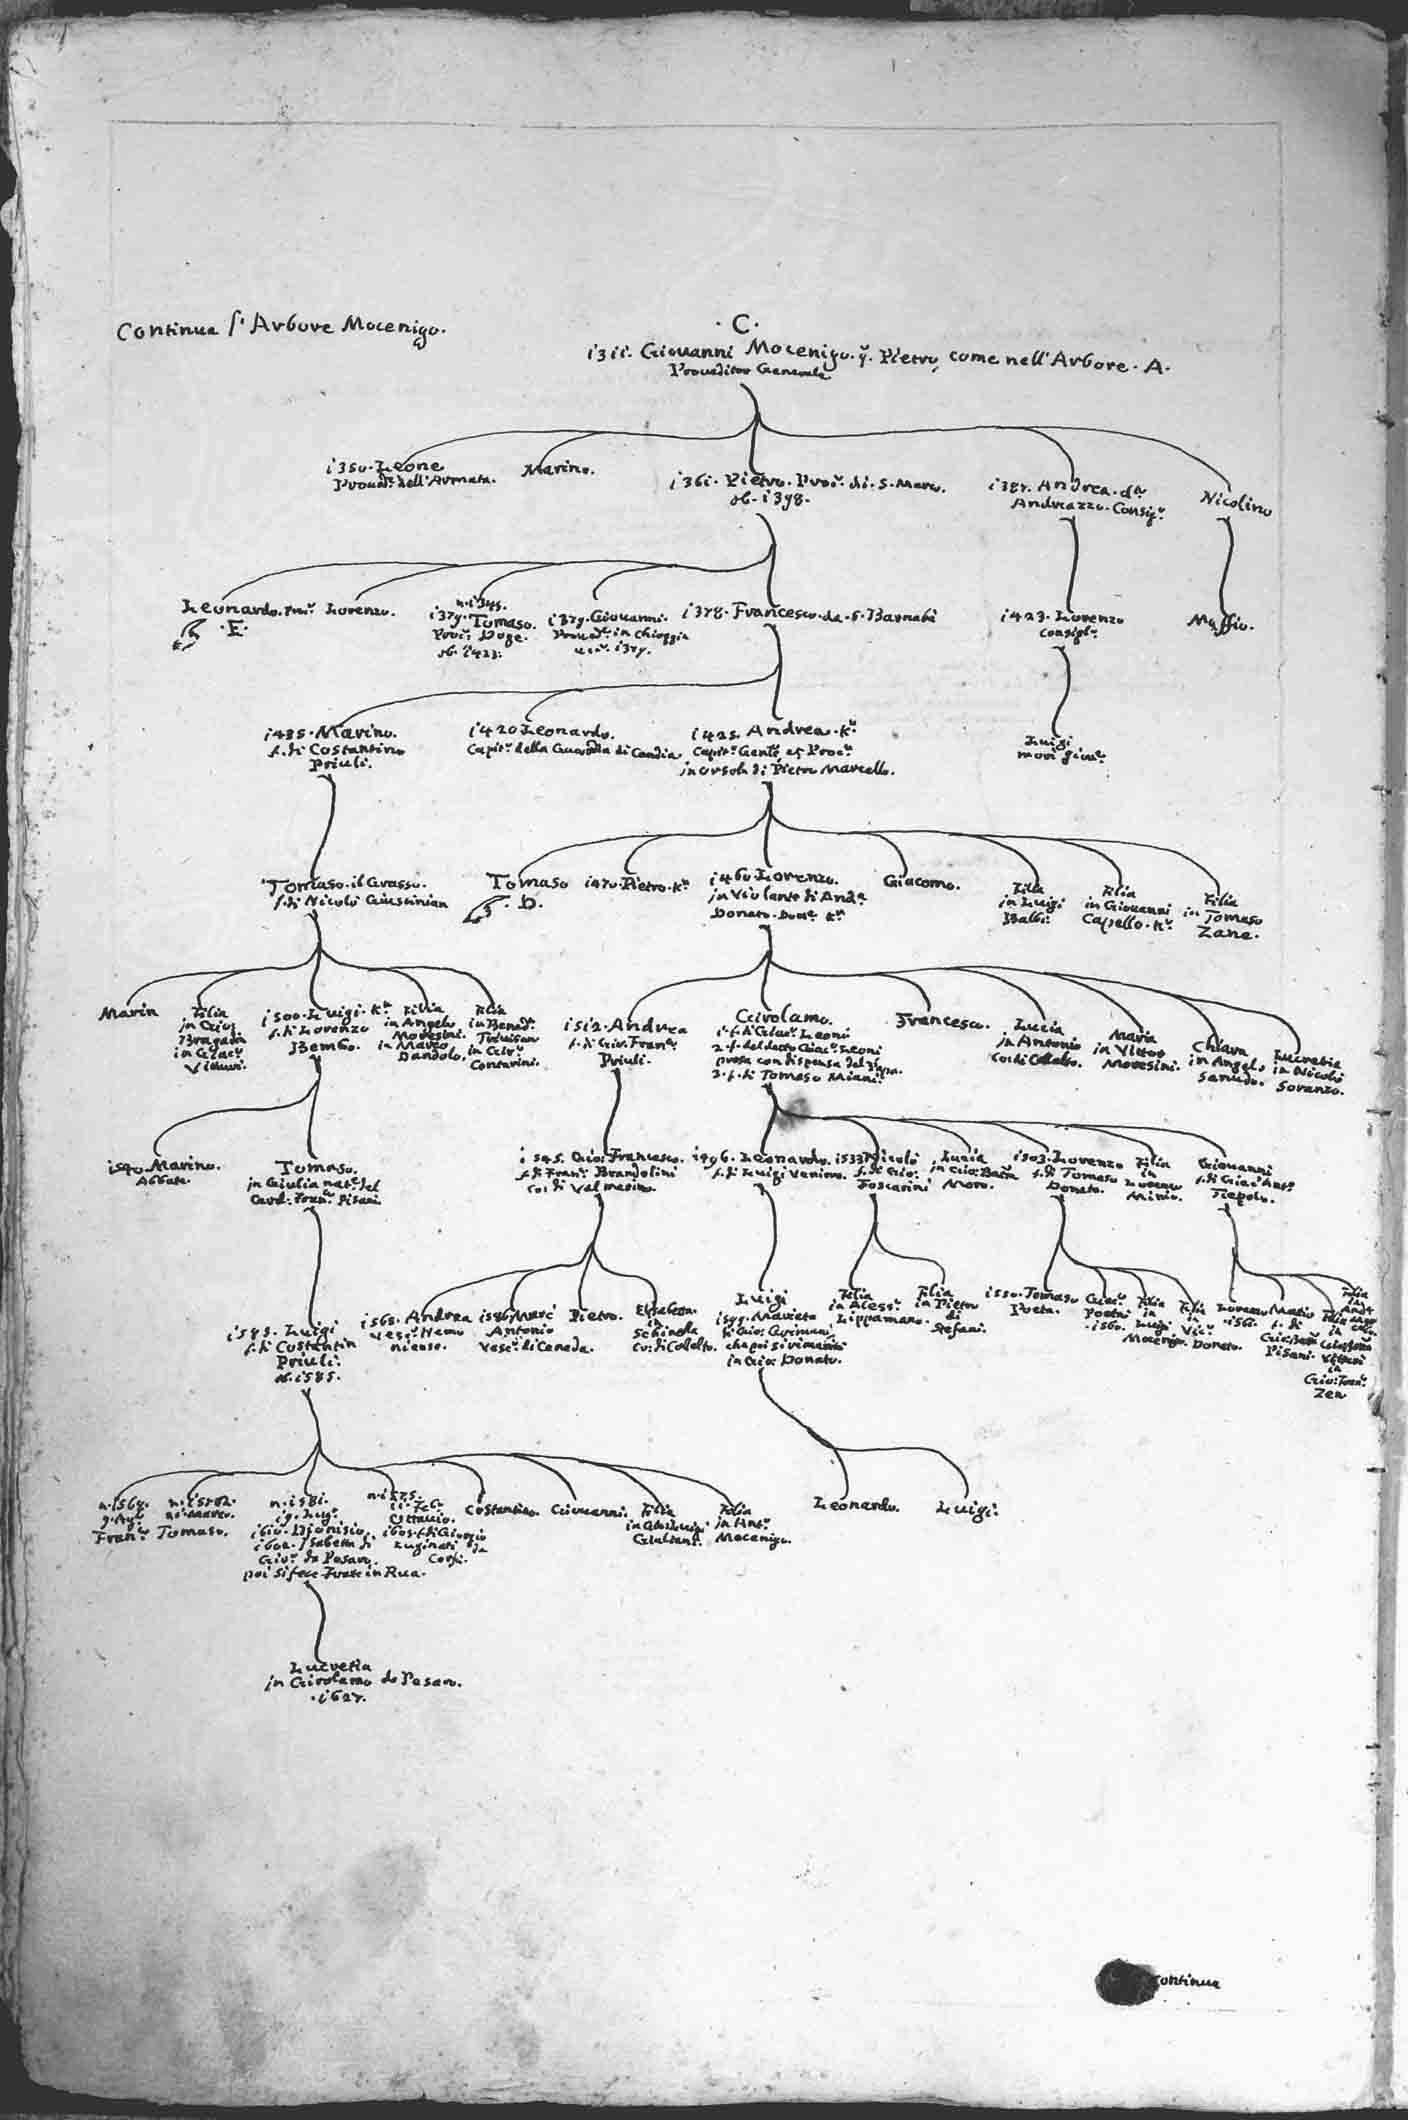 Continua l'Arbore Mocenigo.
.C.
i3ii. Giovanni Mocenigo. q. Pietro, come nell'Arbore. A.
Proveditor Generale
i350. Leone
Proved.r dell'Armata.
Marino.
i36i. Pietro. Proc.r di. S. Marco.
ob. i398.
i387. Andrea. d.o
Andreazzo. Consig.r
Nicolino
Leonardo.
.E.
Lorenzo.
n. i345.
i379. Tomaso.
Proc.r Doge.
ob. i423.
i379. Giovanni.
Proved.r in Chioggia
i379.
i378. Francesco. da. S. Barnabà
i423. Lorenzo
Consigl.r
Maffio.
i435. Marino.
f. di Costantino
Priuli.
i420 Leonardo.
Capit.o della Guardia di Candia
i425. Andrea. K.r
Capit.o Gen.le, et Proc.r
in Orsola di Pietro Marcello.
Luigi
morì giov.e
Tomaso. il Grasso.
f. di Nicolò Giustinian
Tomaso
. D.
i470. Pietro. K.r
i460. Lorenzo.
in Violante di And.a
Donato. K.r
Giacomo.
Filia
in Luigi
Balbi.
Filia
in Giovanni
Capello. K.r
Filia
in Tomaso
Zane.
Marin
Filia
in Giog.
Bragadin
in Giac.o
Vitturi.
i500. Luigi. K.r
f. di Lorenzo
Bembo.
Filia
in Angelo
Moresini.
in Marco
Dandolo.
Filia
in Bened.o
Trivisan
in Gir.o
Contarini.
i5i2. Andrea
f. di Giov. Fran.o
Priuli.
Girolamo.
i. f. di Giac.o Leoni
2. f. del detto Giac.o Leoni
presa con dispensa del Papa.
3. f. di Tomaso Miani.
Francesco.
Lucia
in Antonio
Co: di Collalto.
Maria
in Vittor
Moresini.
Chiara
in Angelo
Sanudo.
Lucretia
in Nicolò
Soranzo.
i540. Marino.
Abbate.
Tomaso.
in Giulia nat.e del
Card: Fran.o Pisani
i545. Gio: Francesco.
f. di Fran.o Brandolini
Co: di Valmarino.
i496. Leonardo.
f. di Luigi Venier.
i533 Nicolò
f. di Gio:
Foscarini
Lucia
in Gio: Batta
Moro.
i503. Lorenzo
f. di Tomaso
Donato.
Filia
in
Lorenzo
Minio.
Giovanni
f. di Giac.o Ant.o
Tiepolo.
i583. Luigi
f. di Costantin
Priuli.
ob. i585.
i565. Andrea
Vesc.o Nemo
niense.
Marc'
Antonio
Vesc.o di Ceneda.
Pietro.
Elisabetta.
in
Schinella
Co: di Collalto.
Luigi
Marieta
di Gio: Grimani
che poi si rimaritò
in Gio: Donato.
Filia
in Aless.o
Lippomano.
Filia
in Pietro
di
Stefani.
i550. Tomaso
Poeta.
Giac.o
Poeta
. i560.
Filia
in
Luigi
Mocenigo.
Filia
in
Vic.o
Donato.
Lorenzo
. i56i.
Matio
f. di
Gio: Batta
Pisani.
Vitturi
in
Gio: Fran.o
Zen
n. i569.
Fran.o
n. i5702.
Tomaso.
n. i58i.
i9. Lug.o
i6i0. Dionisio
i602. Isabetta di
Gio: da Pesaro.
poi si fece Frate in Rua.
n. i575.
ii. Feb.o
Ottavio.
i605. f. di Giorgio
Luginati da
Corfù.
Costantino.
Giovanni.
Filia
Giuliani.
Filia
in Ant.o
Mocenigo.
Leonardo.
Luigi.
Lucretia
in Girolamo da Pesaro.
. i627.
Continua